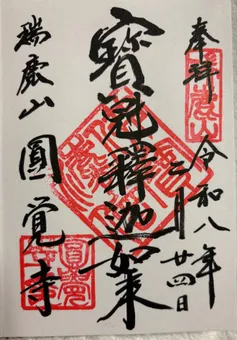 奉拝
令和八年
二月廿四日
寶冠釋迦如来
瑞鹿山
圓覺寺